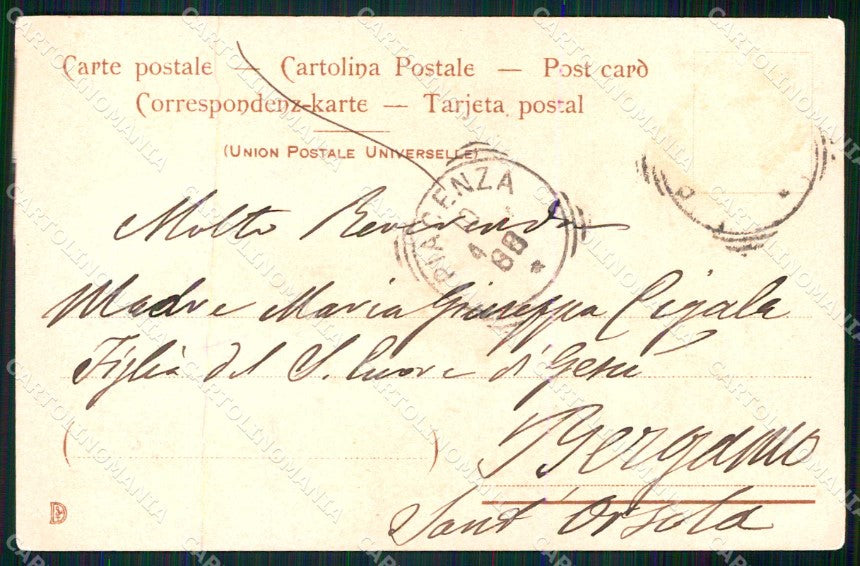 Carte postale — Cartolina Postale — Post card
Correspondenz-karte — Tarjeta postal
(UNION POSTALE UNIVERSELLE)
PIACENZA
Molto Reverenda
Madre Maria Giuseppa Cigala
Figlia del S. Cuore di Gesù
Bergamo
Sant' Orsola
CARTOLINOMANIA